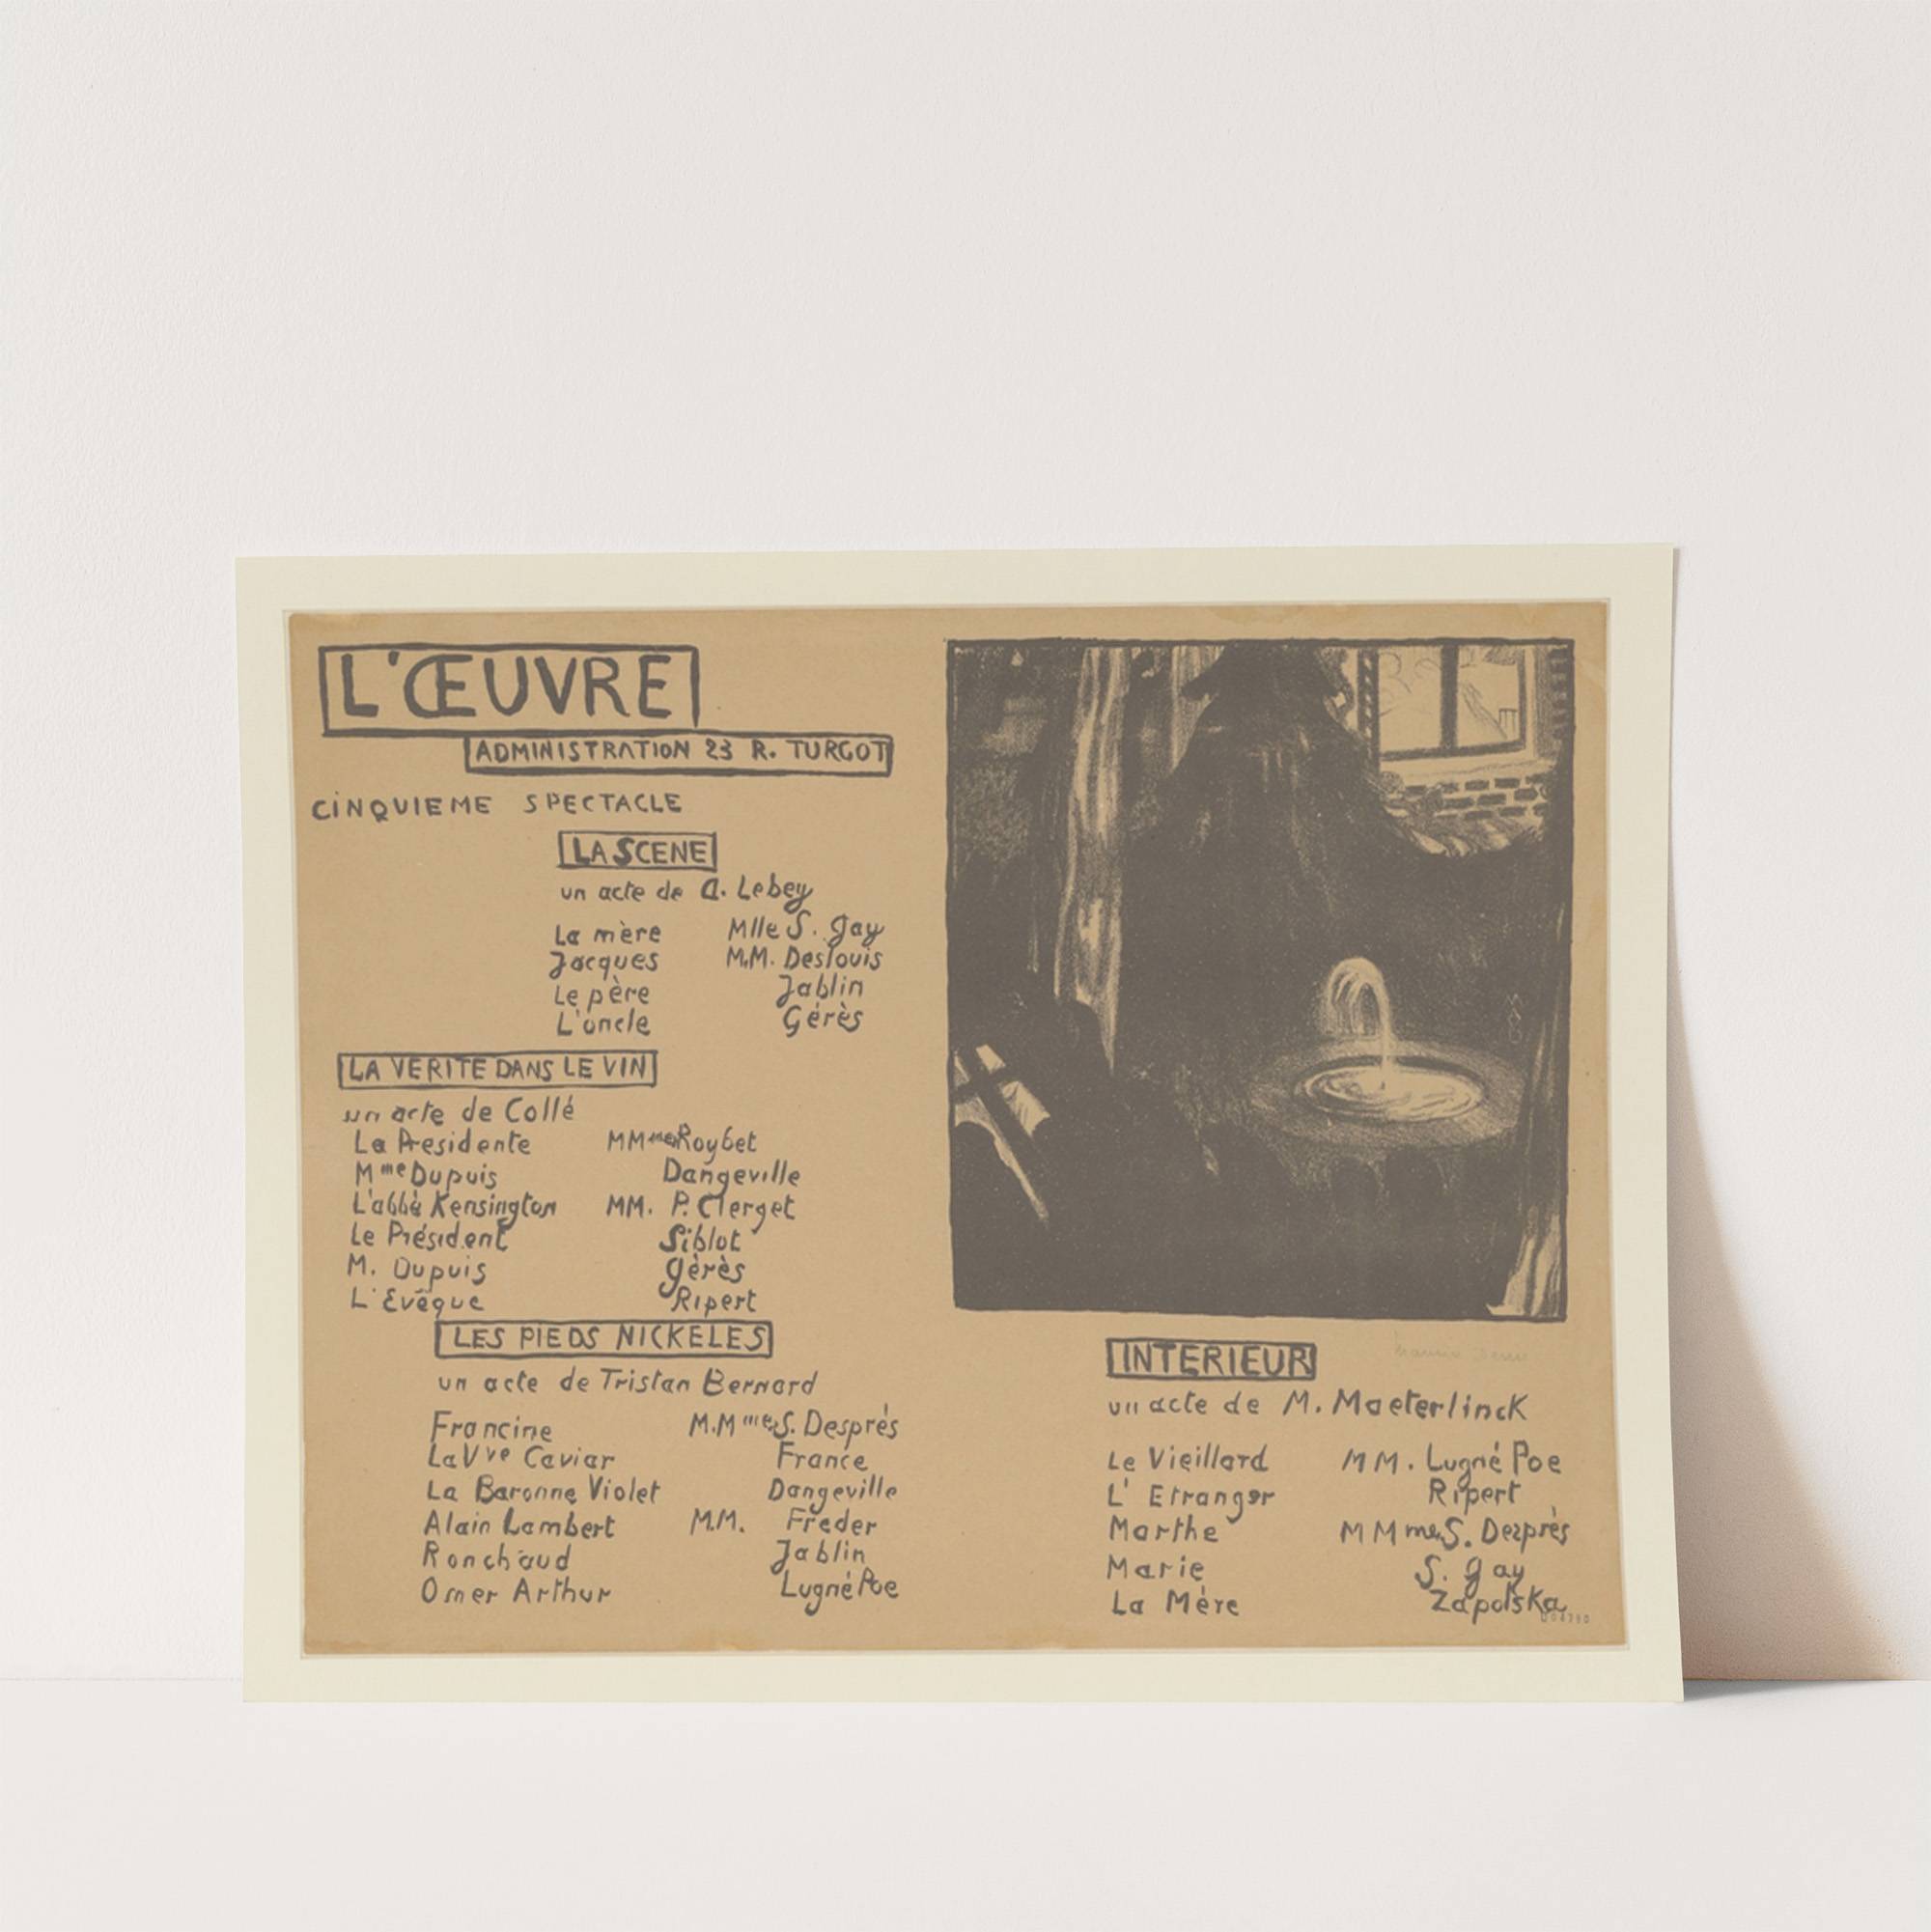 L'ŒUVRE
ADMINISTRATION 23 R. TURGOT
CINQUIEME SPECTACLE
LA SCENE
un acte de A. Lebey
La mère Mlle S. Gay
Jacques MM. Deslouis
Le père Jablin
L'oncle Gérès
LA VERITE DANS LE VIN
un acte de Collé
La Presidente MMmes Roybet
Mme Dupuis Dangeville
L'abbè Kensington MM. P. Clerget
Le Président Siblot
M. Dupuis Gérès
L'Evêque Ripert
LES PIEDS NICKELES
un acte de Tristan Bernard
Francine M.Mmes S. Després
La Vve Caviar France
La Baronne Violet Dangeville
Alain Lambert M.M. Freder
Ronchaud Jablin
Omer Arthur Lugné Poe
INTERIEUR
un acte de M. Maeterlinck
Le Vieillard MM. Lugné Poe
L'Etranger Ripert
Marthe MMmes S. Després
Marie S. Gay
La Mère Zapolska